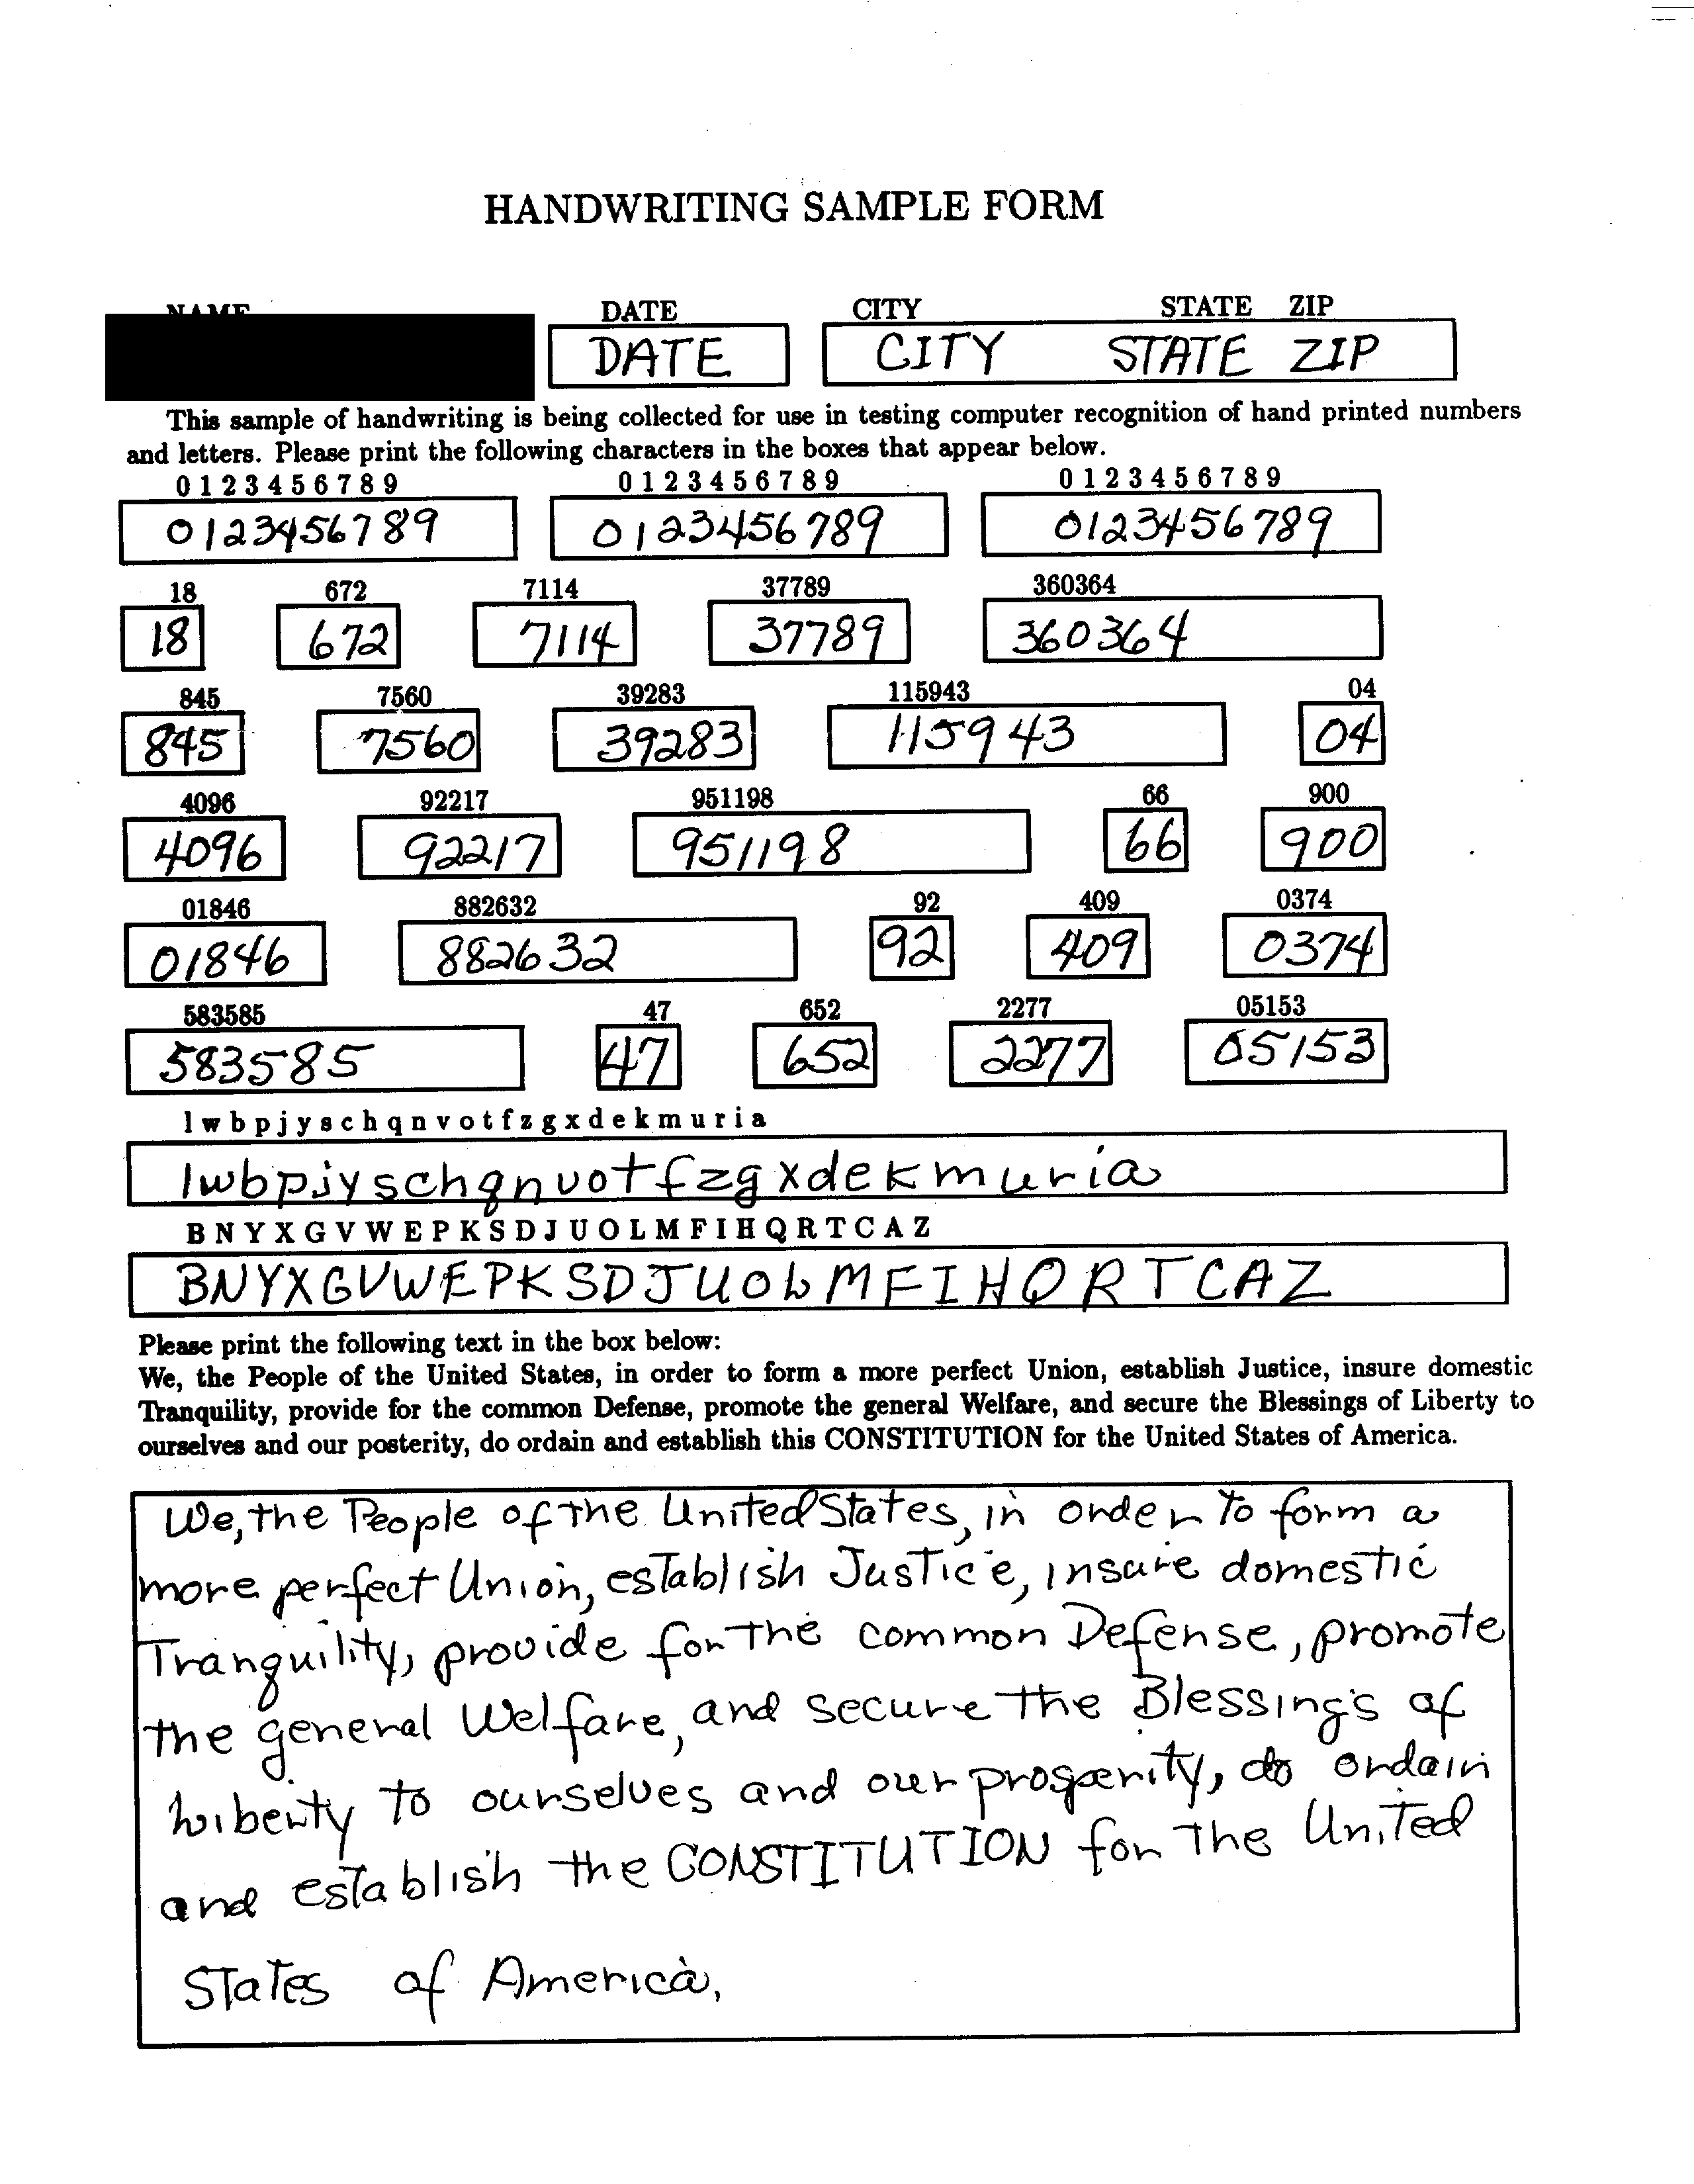 HANDWRITING SAMPLE FORM
DATE CITY STATE ZIP
DATE CITY STATE ZIP
This sample of handwriting is being collected for use in testing computer recognition of hand printed numbers
and letters. Please print the following characters in the boxes that appear below.
0 1 2 3 4 5 6 7 8 9 0 1 2 3 4 5 6 7 8 9 0 1 2 3 4 5 6 7 8 9
0123456789 0123456789 0123456789
18 672 7114 37789 360364
18 672 7114 37789 360364
845 7560 39283 115943 04
845 7560 39283 115943 04
4096 92217 951198 66 900
4096 92217 951198 66 900
01846 882632 92 409 0374
01846 882632 92 409 0374
583585 47 652 2277 05153
583585 47 652 2277 05153
l w b p j y s c h q n v o t f z g x d e k m u r i a
lwbpjyschqnvotfzgxdekmuria
B N Y X G V W E P K S D J U O L M F I H Q R T C A Z
BNYXGVWEPKSDJUOLMFIHQRTCAZ
Please print the following text in the box below:
We, the People of the United States, in order to form a more perfect Union, establish Justice, insure domestic
Tranquility, provide for the common Defense, promote the general Welfare, and secure the Blessings of Liberty to
ourselves and our posterity, do ordain and establish this CONSTITUTION for the United States of America.
We, the People of the United States, in order to form a
more perfect Union, establish Justice, insure domestic
Tranquility, provide for the common Defense, promote
the general Welfare, and secure the Blessings of
Liberty to ourselves and our prosperity, do ordain
and establish the CONSTITUTION for the United
States of America,